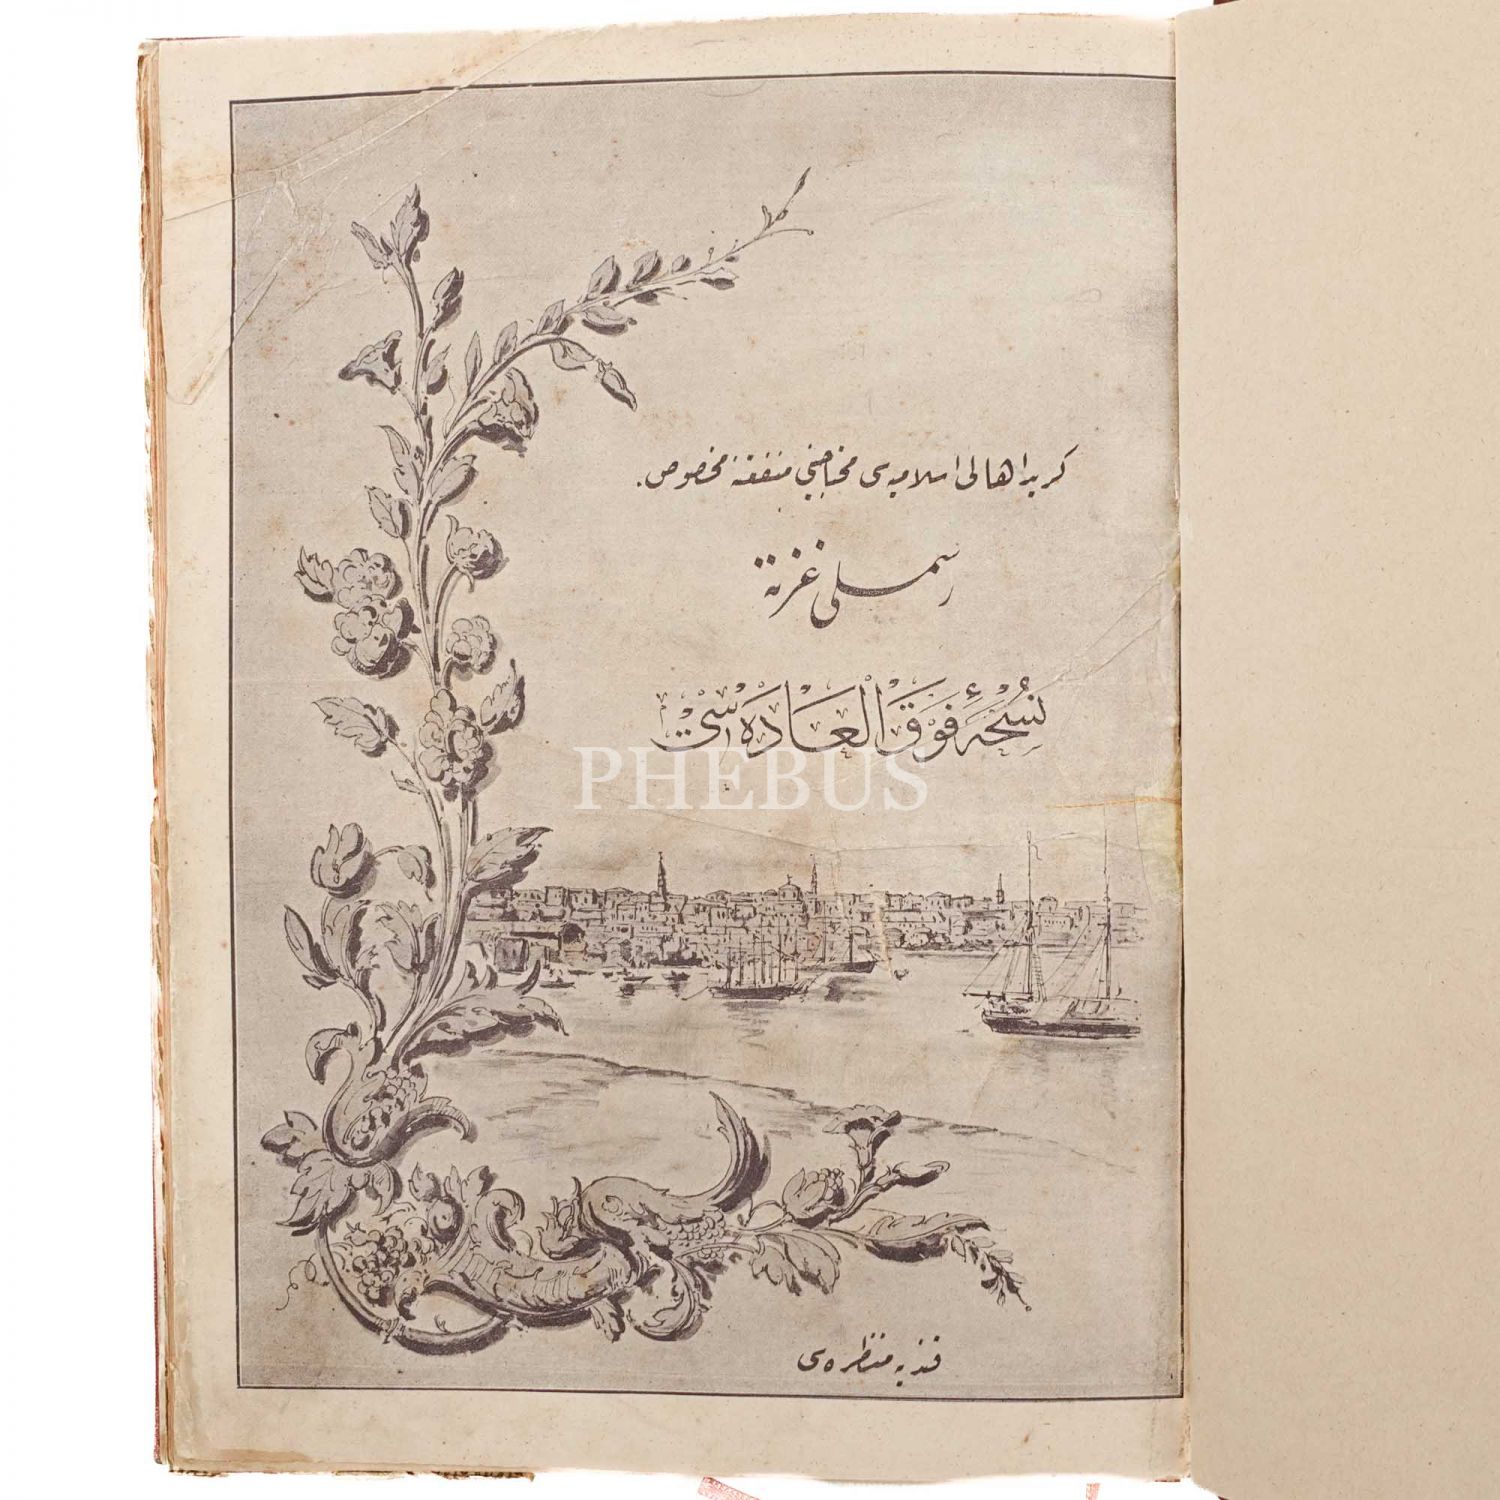 كريد اهالئ اسلاميه‌سى محتاجينى منفعتنه مخصوص.
رسملى غزته
نُسْخَهٔ فَوْقَ الْعَادَه سِى
PHEBUS
قنديه منظره‌سى